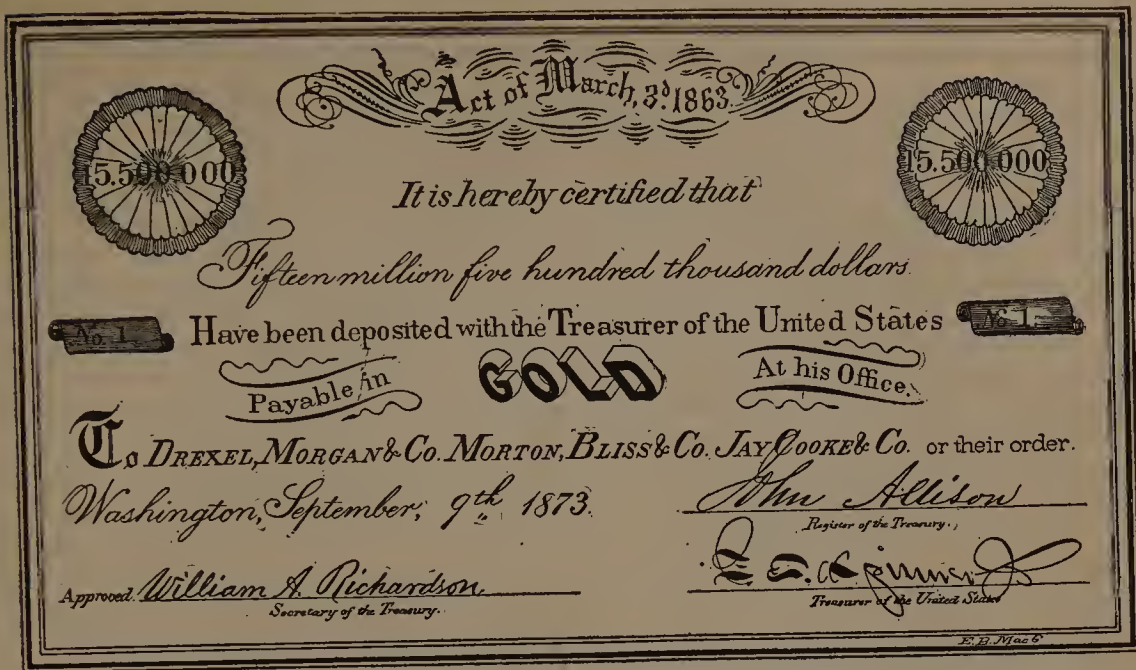 Act of March, 3d. 1863.
15.500 000
15.500 000
It is hereby certified that
Fifteen million five hundred thousand dollars.
No. 1
Have been deposited with the Treasurer of the United States
No. 1
Payable in
GOLD
At his Office.
To DREXEL, MORGAN & Co. MORTON, BLISS & Co. JAY COOKE & Co. or their order.
Washington, September, 9th 1873.
John Allison
Register of the Treasury.
Approved. William A. Richardson
Secretary of the Treasury.
Spinner
Treasurer of the United States